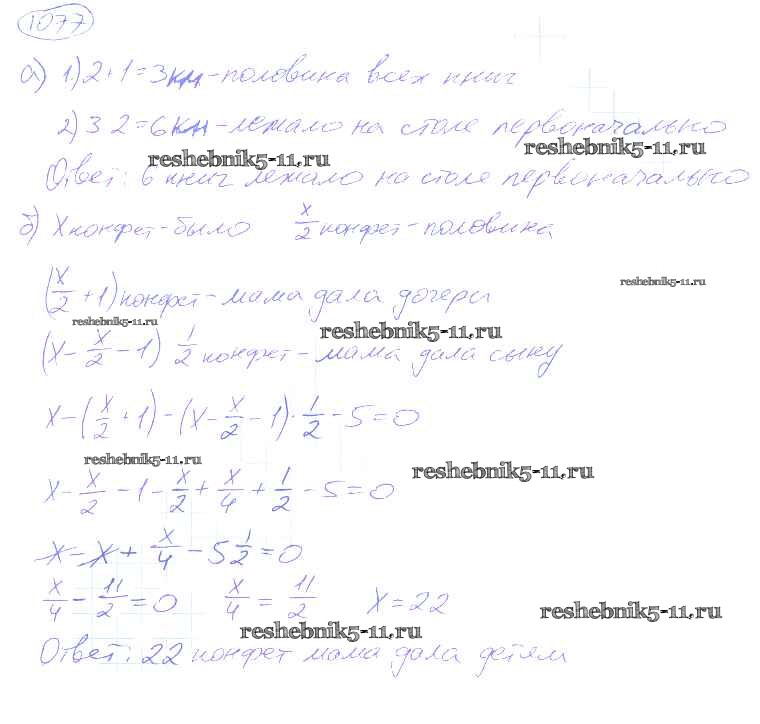 1077
а) 1) 2+1=3 кн - половина всех книг
2) 3 2=6 кн - лежало на столе первоначально
reshebnik5-11.ru reshebnik5-11.ru
Ответ: 6 книг лежало на столе первоначально
б) x конфет - было x/2 конфет - половина
reshebnik5-11.ru
(x/2 + 1) конфет - мама дала дочери
reshebnik5-11.ru reshebnik5-11.ru
(x - x/2 - 1) 1/2 конфет - мама дала сыну
x - (x/2 + 1) - (x - x/2 - 1) · 1/2 - 5 = 0
reshebnik5-11.ru reshebnik5-11.ru
x - x/2 - 1 - x/2 + x/4 + 1/2 - 5 = 0
x - x + x/4 - 5 1/2 = 0
x/4 - 11/2 = 0 x/4 = 11/2 x = 22
reshebnik5-11.ru reshebnik5-11.ru
Ответ: 22 конфет мама дала детям